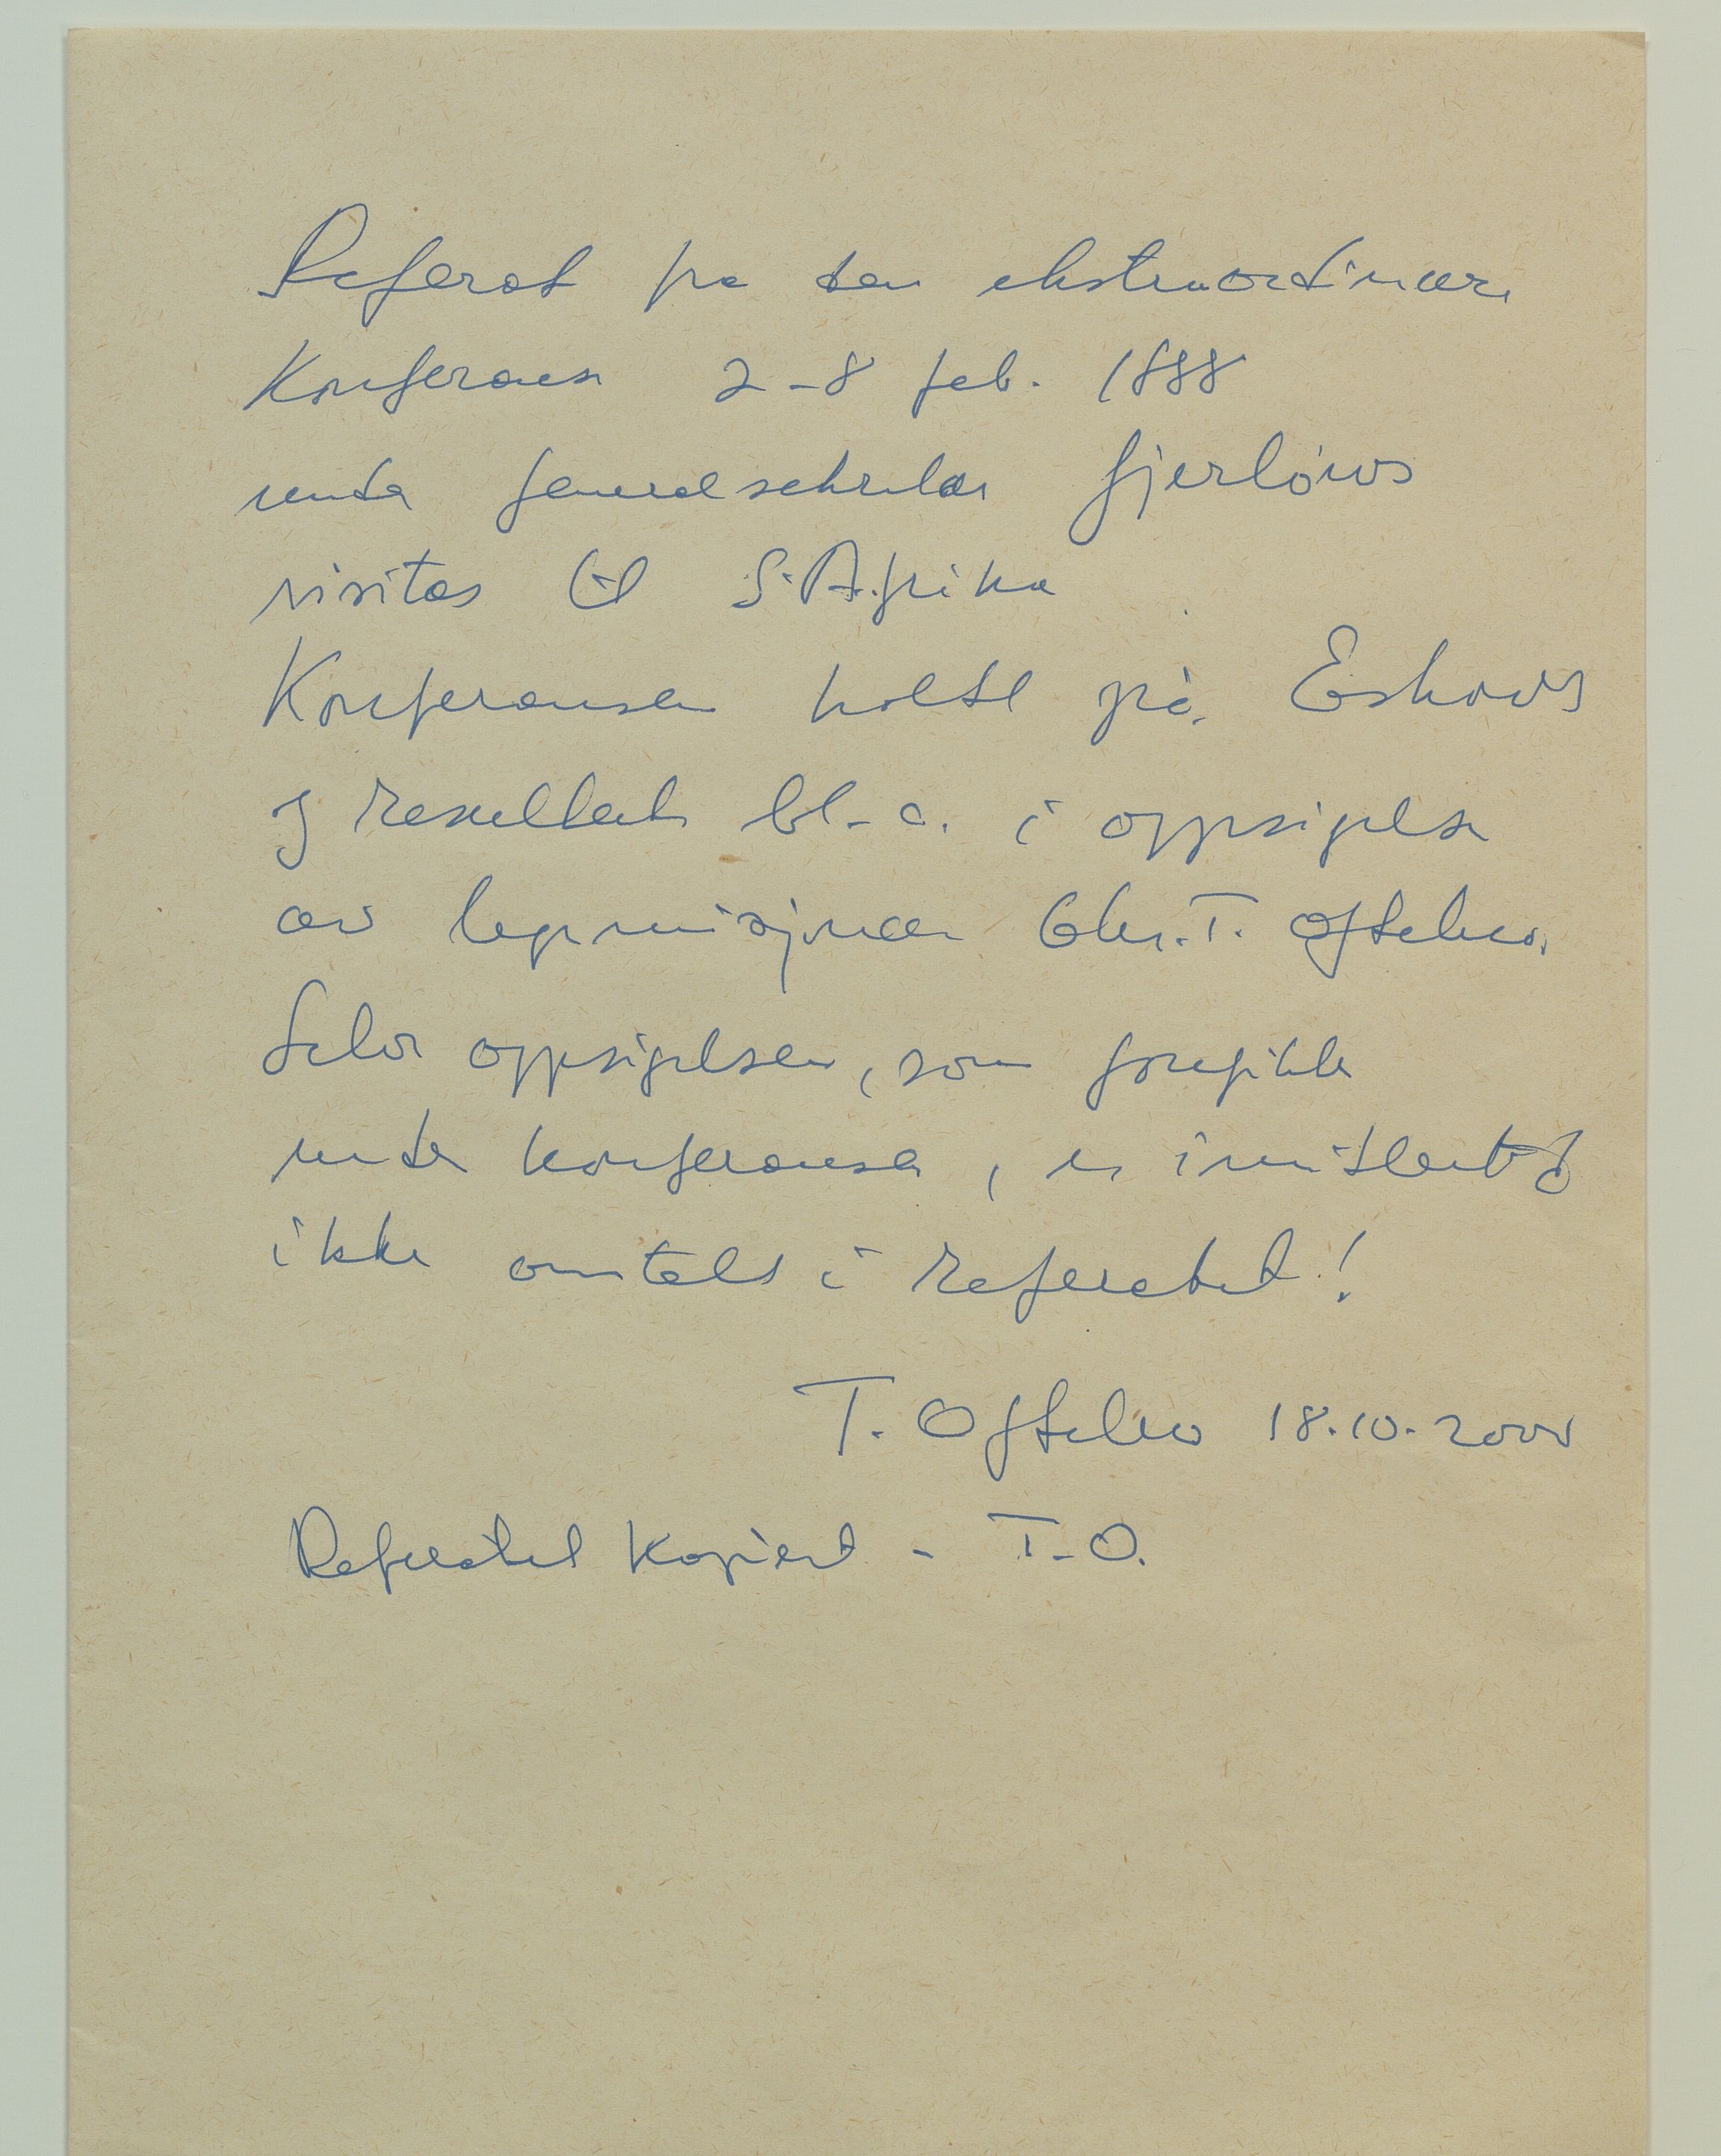 Referat fra den ekstraordinære
Konferanse 2-8 feb. 1888
under generalsekretær Gjerløws
visitas til S.Afrika
Konferansen holdt på Eshowe
og resulterte bl.a. i oppsigelse
av legemisjonær Chr.T. Oftebro.
Selve oppsigelsen, som foregikk
under konferansen, er imidlertid
ikke omtalt i referatet!
T. Oftebro 18.10.2000
Referatet kopiert - T.O.